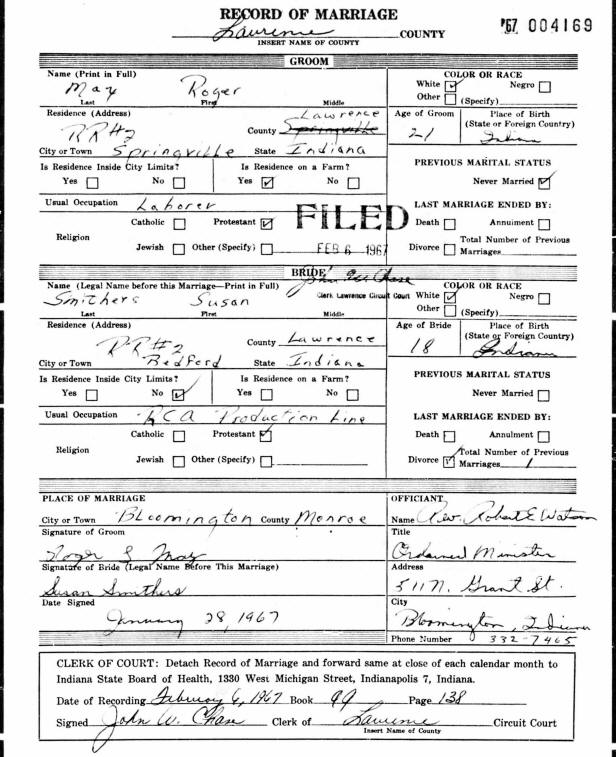 RECORD OF MARRIAGE
Lawrence COUNTY
INSERT NAME OF COUNTY
'67 004169
GROOM
Name (Print in Full)
May Roger
Last First Middle
COLOR OR RACE
White ☑ Negro ☐
Other ☐ (Specify)
Residence (Address)
RR#2
Lawrence
County Springville
City or Town Springville State Indiana
Age of Groom
21
Place of Birth
(State or Foreign Country)
Indiana
Is Residence Inside City Limits?
Yes ☐ No ☐
Is Residence on a Farm?
Yes ☑ No ☐
PREVIOUS MARITAL STATUS
Never Married ☑
Usual Occupation Laborer
Religion
Catholic ☐ Protestant ☑
Jewish ☐ Other (Specify) ☐
FILED
FEB 6 1967
LAST MARRIAGE ENDED BY:
Death ☐ Annulment ☐
Divorce ☐ Total Number of Previous
Marriages
BRIDE
John W. Chase
Clerk Lawrence Circuit Court
Name (Legal Name before this Marriage—Print in Full)
Smithers Susan
Last First Middle
COLOR OR RACE
White ☑ Negro ☐
Other ☐ (Specify)
Residence (Address)
RR#2
County Lawrence
City or Town Bedford State Indiana
Age of Bride
18
Place of Birth
(State or Foreign Country)
Indiana
Is Residence Inside City Limits?
Yes ☐ No ☑
Is Residence on a Farm?
Yes ☐ No ☐
PREVIOUS MARITAL STATUS
Never Married ☐
Usual Occupation RCA Production Line
Religion
Catholic ☐ Protestant ☑
Jewish ☐ Other (Specify) ☐
LAST MARRIAGE ENDED BY:
Death ☐ Annulment ☐
Divorce ☑ Total Number of Previous
Marriages 1
PLACE OF MARRIAGE
City or Town Bloomington County Monroe
Signature of Groom
Roger L May
Signature of Bride (Legal Name Before This Marriage)
Susan Smithers
Date Signed
January 28, 1967
OFFICIANT
Name Rev. Robert E Watson
Title
Ordained Minister
Address
511 N. Grant St.
City
Bloomington, Indiana
Phone Number 332-7465
CLERK OF COURT: Detach Record of Marriage and forward same at close of each calendar month to
Indiana State Board of Health, 1330 West Michigan Street, Indianapolis 7, Indiana.
Date of Recording February 6, 1967 Book 99 Page 138
Signed John W. Chase Clerk of Lawrence Circuit Court
Insert Name of County